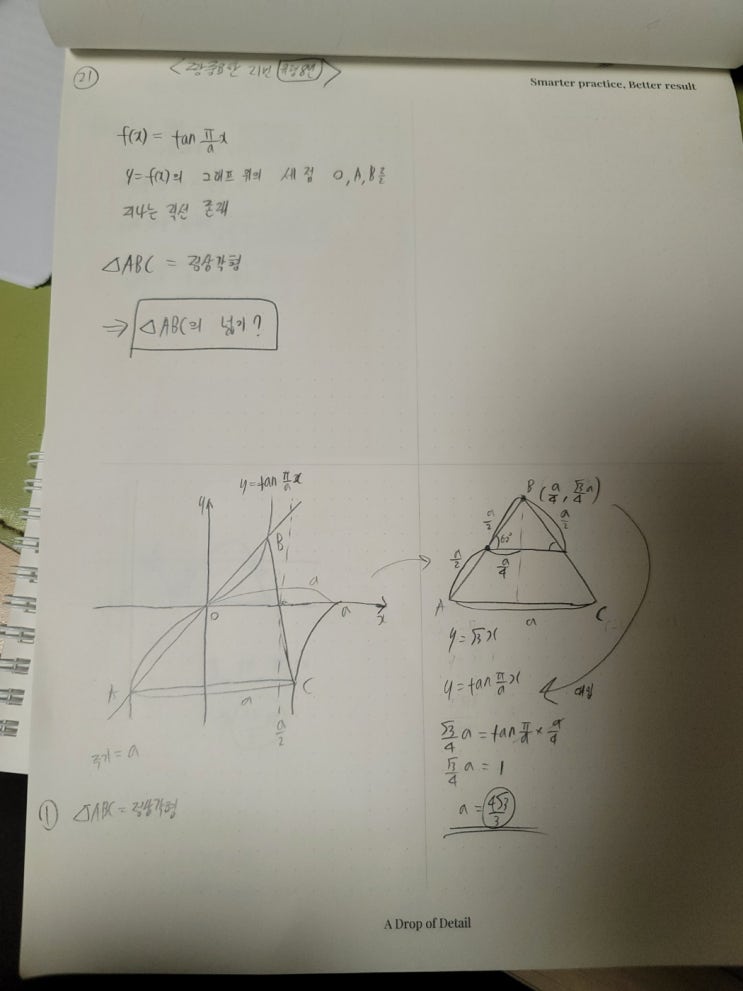 ㉑
Smarter practice, Better result
f(x) = tan π/a x
y=f(x)의 그래프 위의 세 점 O, A, B를
지나는 직선 존재
△ABC = 정삼각형
⇒ △ABC의 넓이?
y=tan π/a x
y
B
a
O
a
x
A
C
a
a/2
주기 = a
① △ABC = 정삼각형
B (a/4, √3/4 a)
a/2
a/2
60°
a/2
a/4
A
C
a
y = √3x
y = tan π/a x
대입
√3/4 a = tan π/a × a/4
√3/4 a = 1
a = 4√3/3
A Drop of Detail